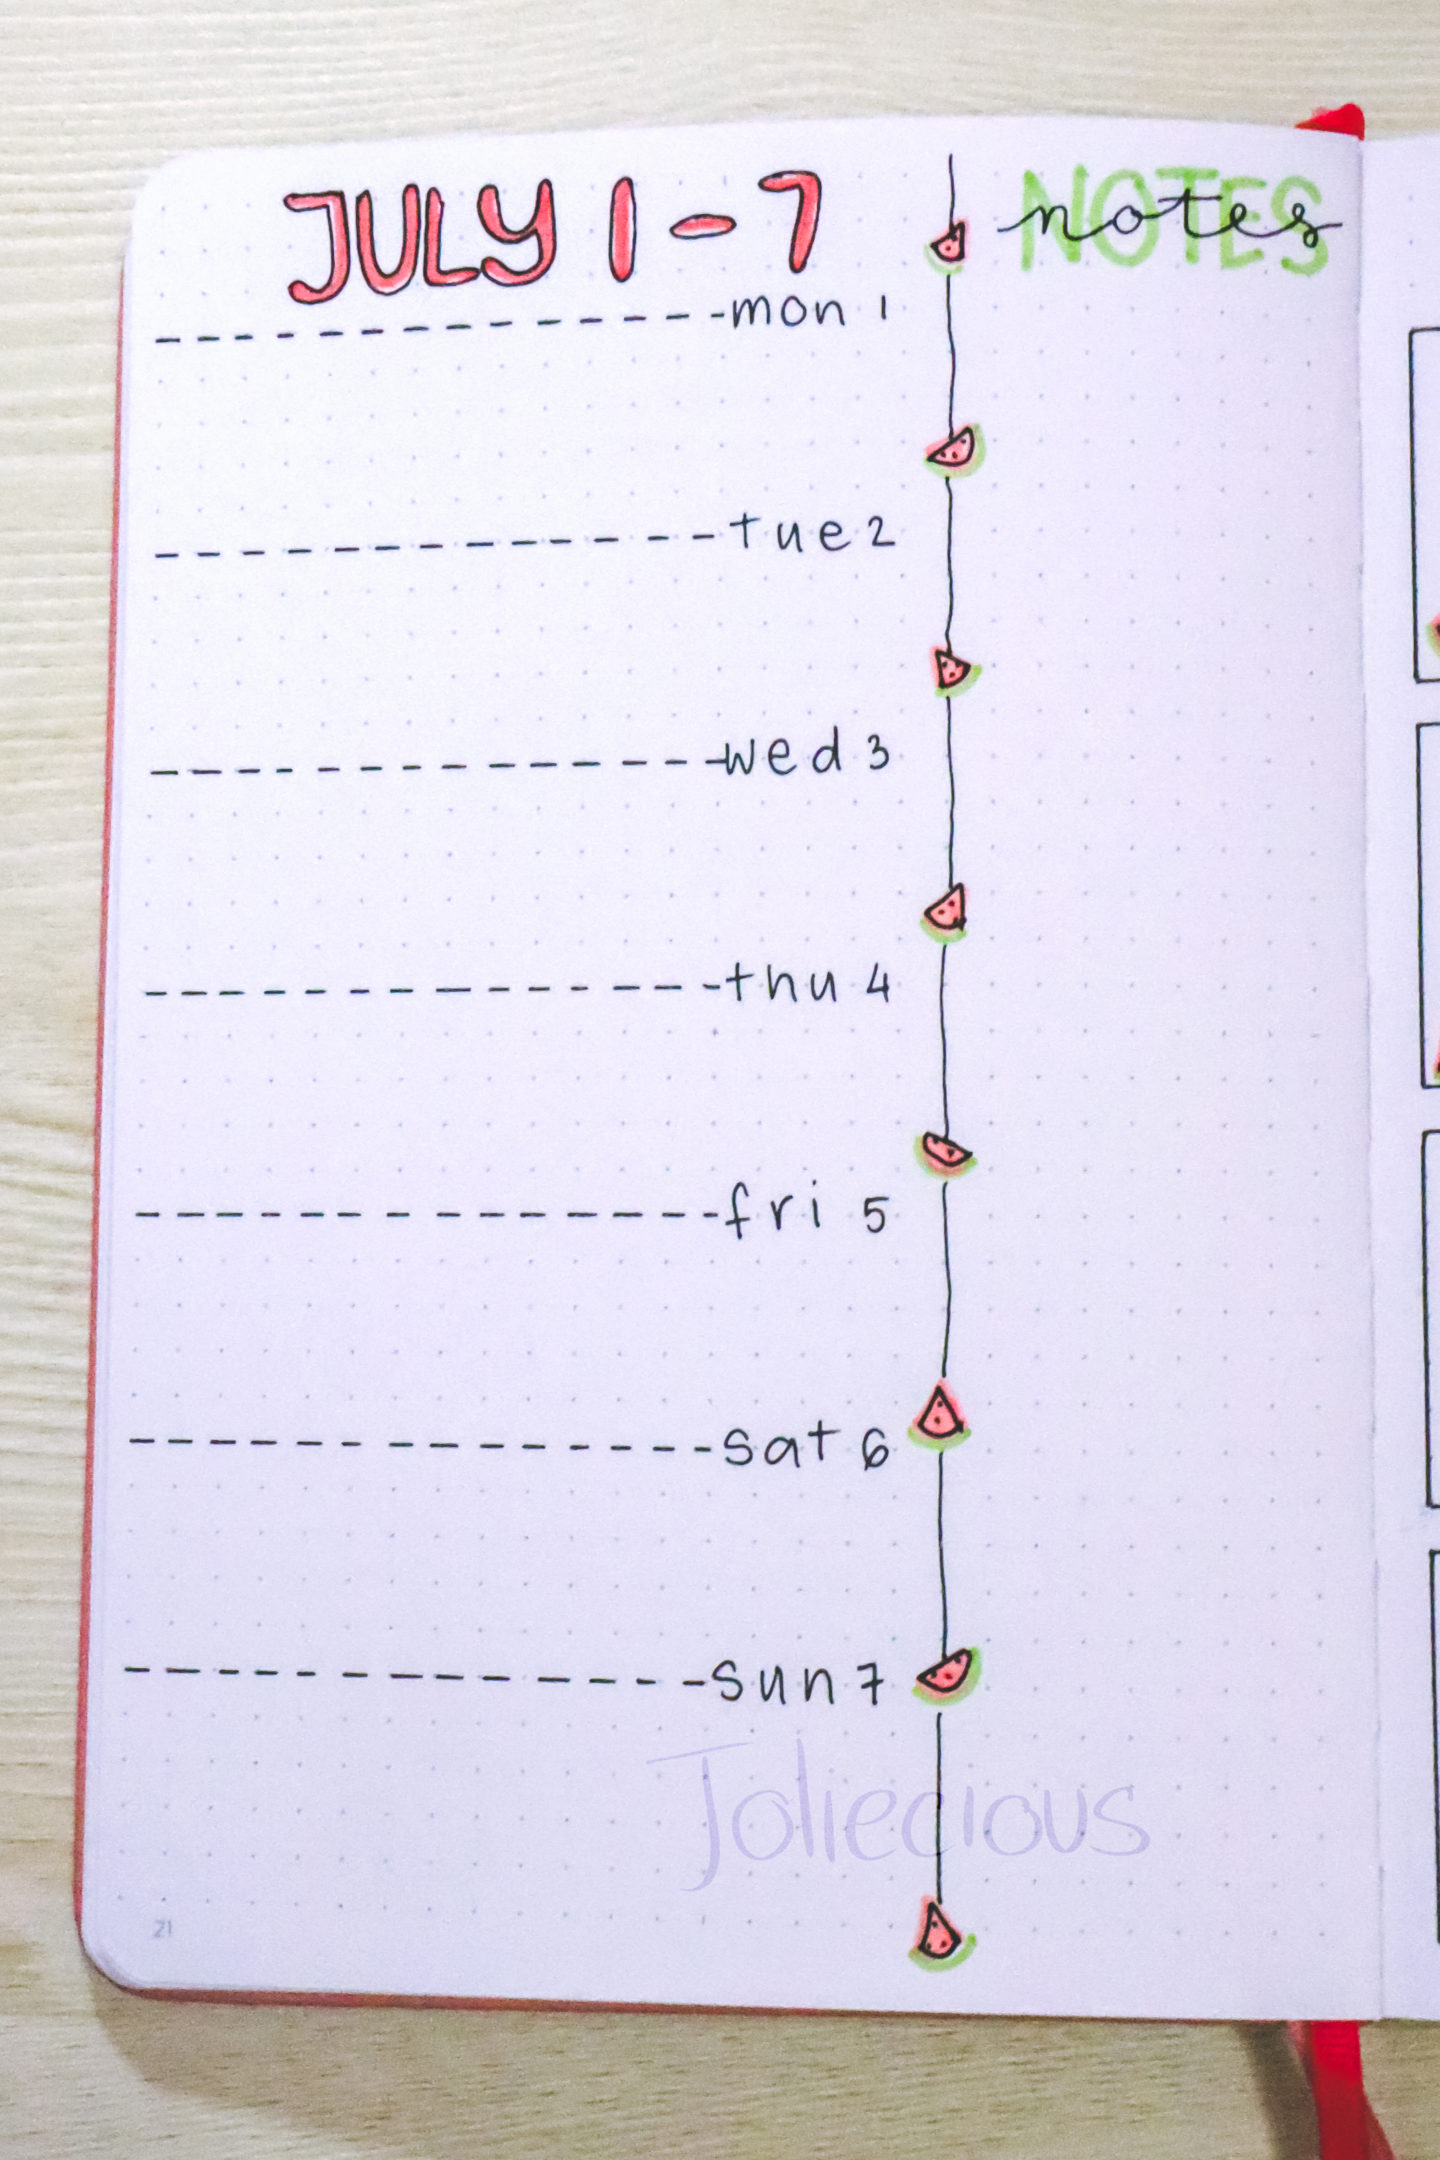 JULY 1-7
NOTES
notes
mon 1
tue 2
wed 3
thu 4
fri 5
sat 6
sun 7
Joliecious
21